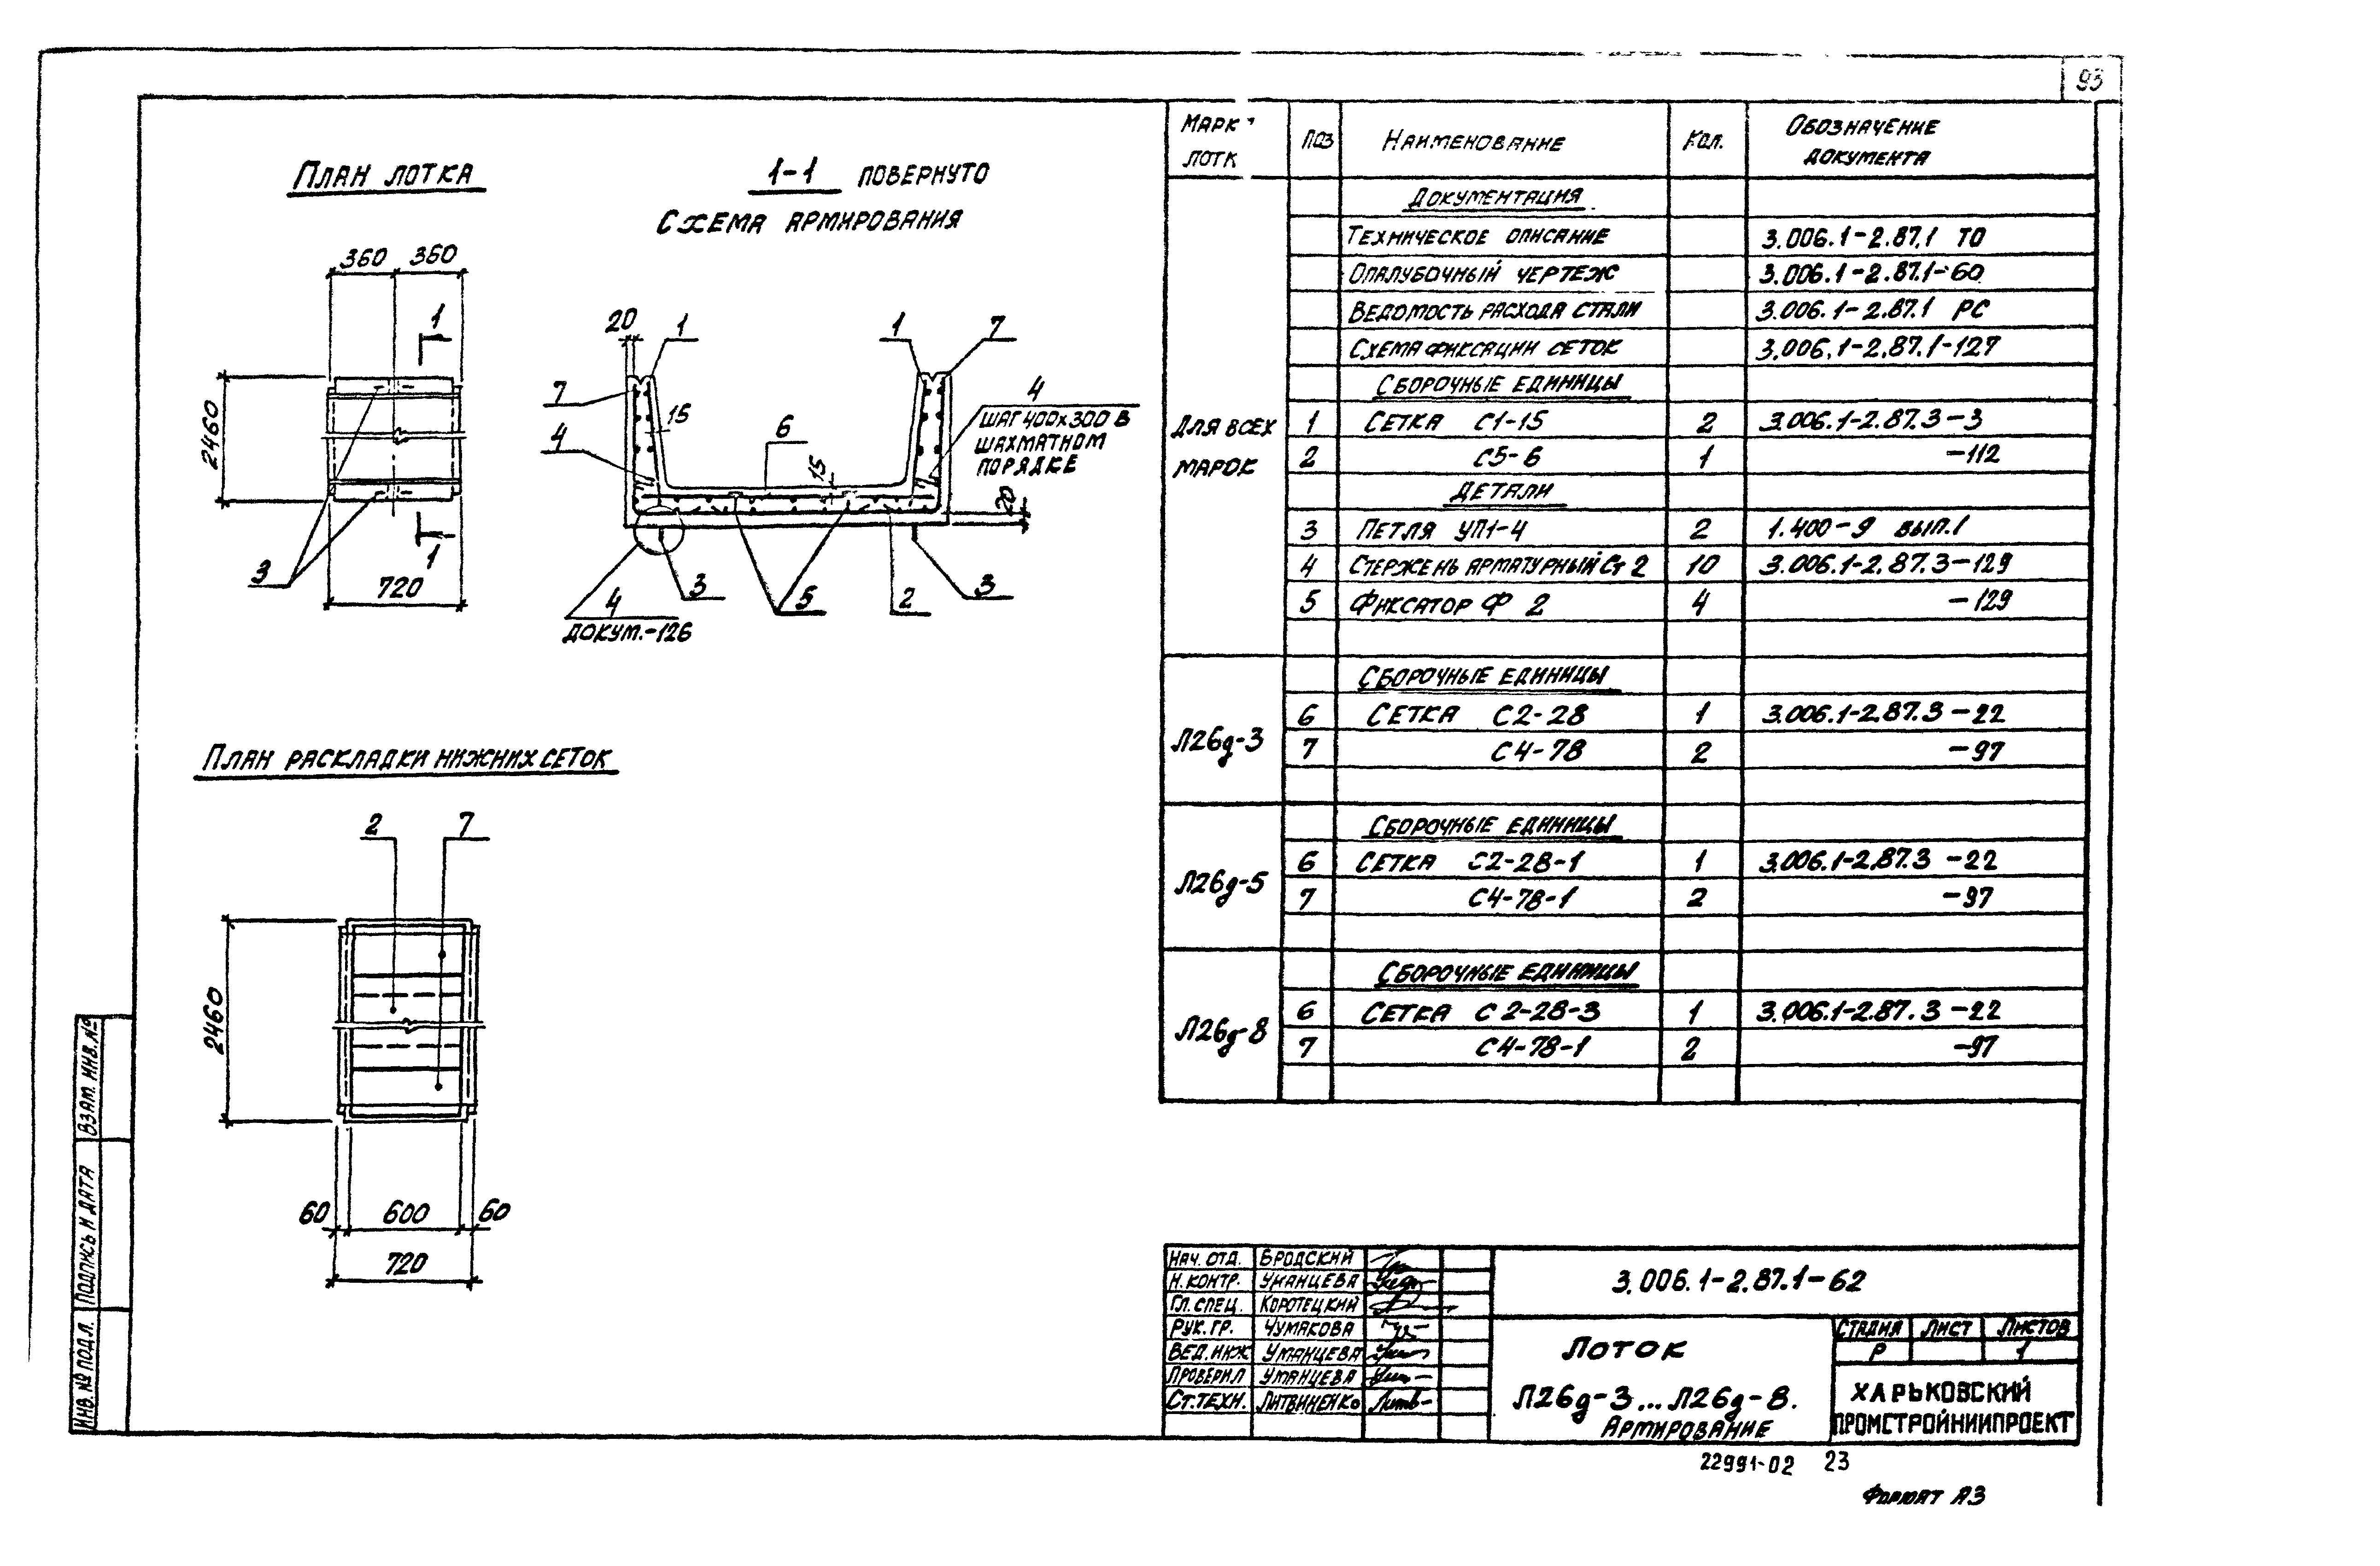 93
План лотка
360 360
1
2460
3
1
720
1-1 повернуто
Схема армирования
20 1 1 7
7
15
4
6
15
4
шаг 400х300 в
шахматном
порядке
20
4
докум.-126
3 5 2 3
План раскладки нижних сеток
2 7
2460
60 600 60
720
Марк
лотк
Поз
Наименование
Кол.
Обозначение
документа
Документация
Техническое описание 3.006.1-2.87.1 ТО
Опалубочный чертеж 3.006.1-2.87.1-60
Ведомость расхода стали 3.006.1-2.87.1 РС
Схема фиксации сеток 3.006.1-2.87.1-127
Сборочные единицы
Для всех
марок
1 Сетка С1-15 2 3.006.1-2.87.3-3
2 С5-6 1 -112
Детали
3 Петля УП1-4 2 1.400-9 вып.1
4 Стержень арматурный Ст 2 10 3.006.1-2.87.3-129
5 Фиксатор Ф 2 4 -129
Л26д-3
Сборочные единицы
6 Сетка С2-28 1 3.006.1-2.87.3-22
7 С4-78 2 -97
Л26д-5
Сборочные единицы
6 Сетка С2-28-1 1 3.006.1-2.87.3-22
7 С4-78-1 2 -97
Л26д-8
Сборочные единицы
6 Сетка С2-28-3 1 3.006.1-2.87.3-22
7 С4-78-1 2 -97
Взам. инв. №
Подпись и дата
Инв. № подл.
Нач. отд. Бродский
Н. контр. Уманцева
Гл. спец. Коротецкий
Рук. гр. Чумакова
Вед. инж Уманцева
Проверил Уманцева
Ст. техн. Литвиненко
3.006.1-2.87.1-62
Лоток
Л26д-3...Л26д-8.
Армирование
Стадия Лист Листов
Р 1
Харьковский
Промстройниипроект
22991-02 23
Формат А3